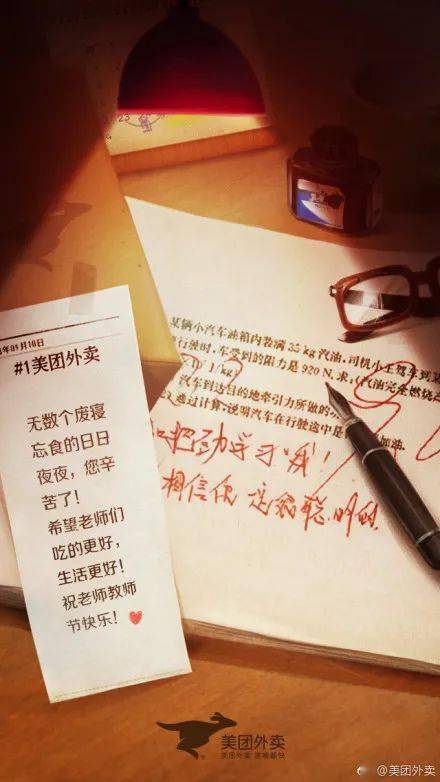 23
年09月10日
#1美团外卖
无数个废寝
忘食的日日
夜夜，您辛
苦了！
希望老师们
吃的更好，
生活更好！
祝老师教师
节快乐！
某辆小汽车油箱内装满 35 kg 汽油，司机小王驾车到某
行驶时，车受到的阻力是 920 N，求：
汽油完全燃烧
J/kg）
汽车到达目的地牵引力所做的
通过计算，说明汽车在行驶途中是
加油.
把劲学习哦！
相信你 是最聪明的
美团外卖
美团外卖 送啥都快
@美团外卖